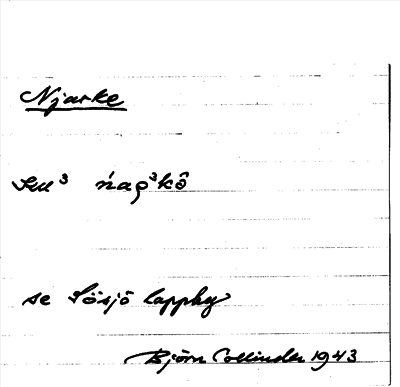 Njarke
ńaρ³kô
se Sösjö lappby
Björn Collinder 1943